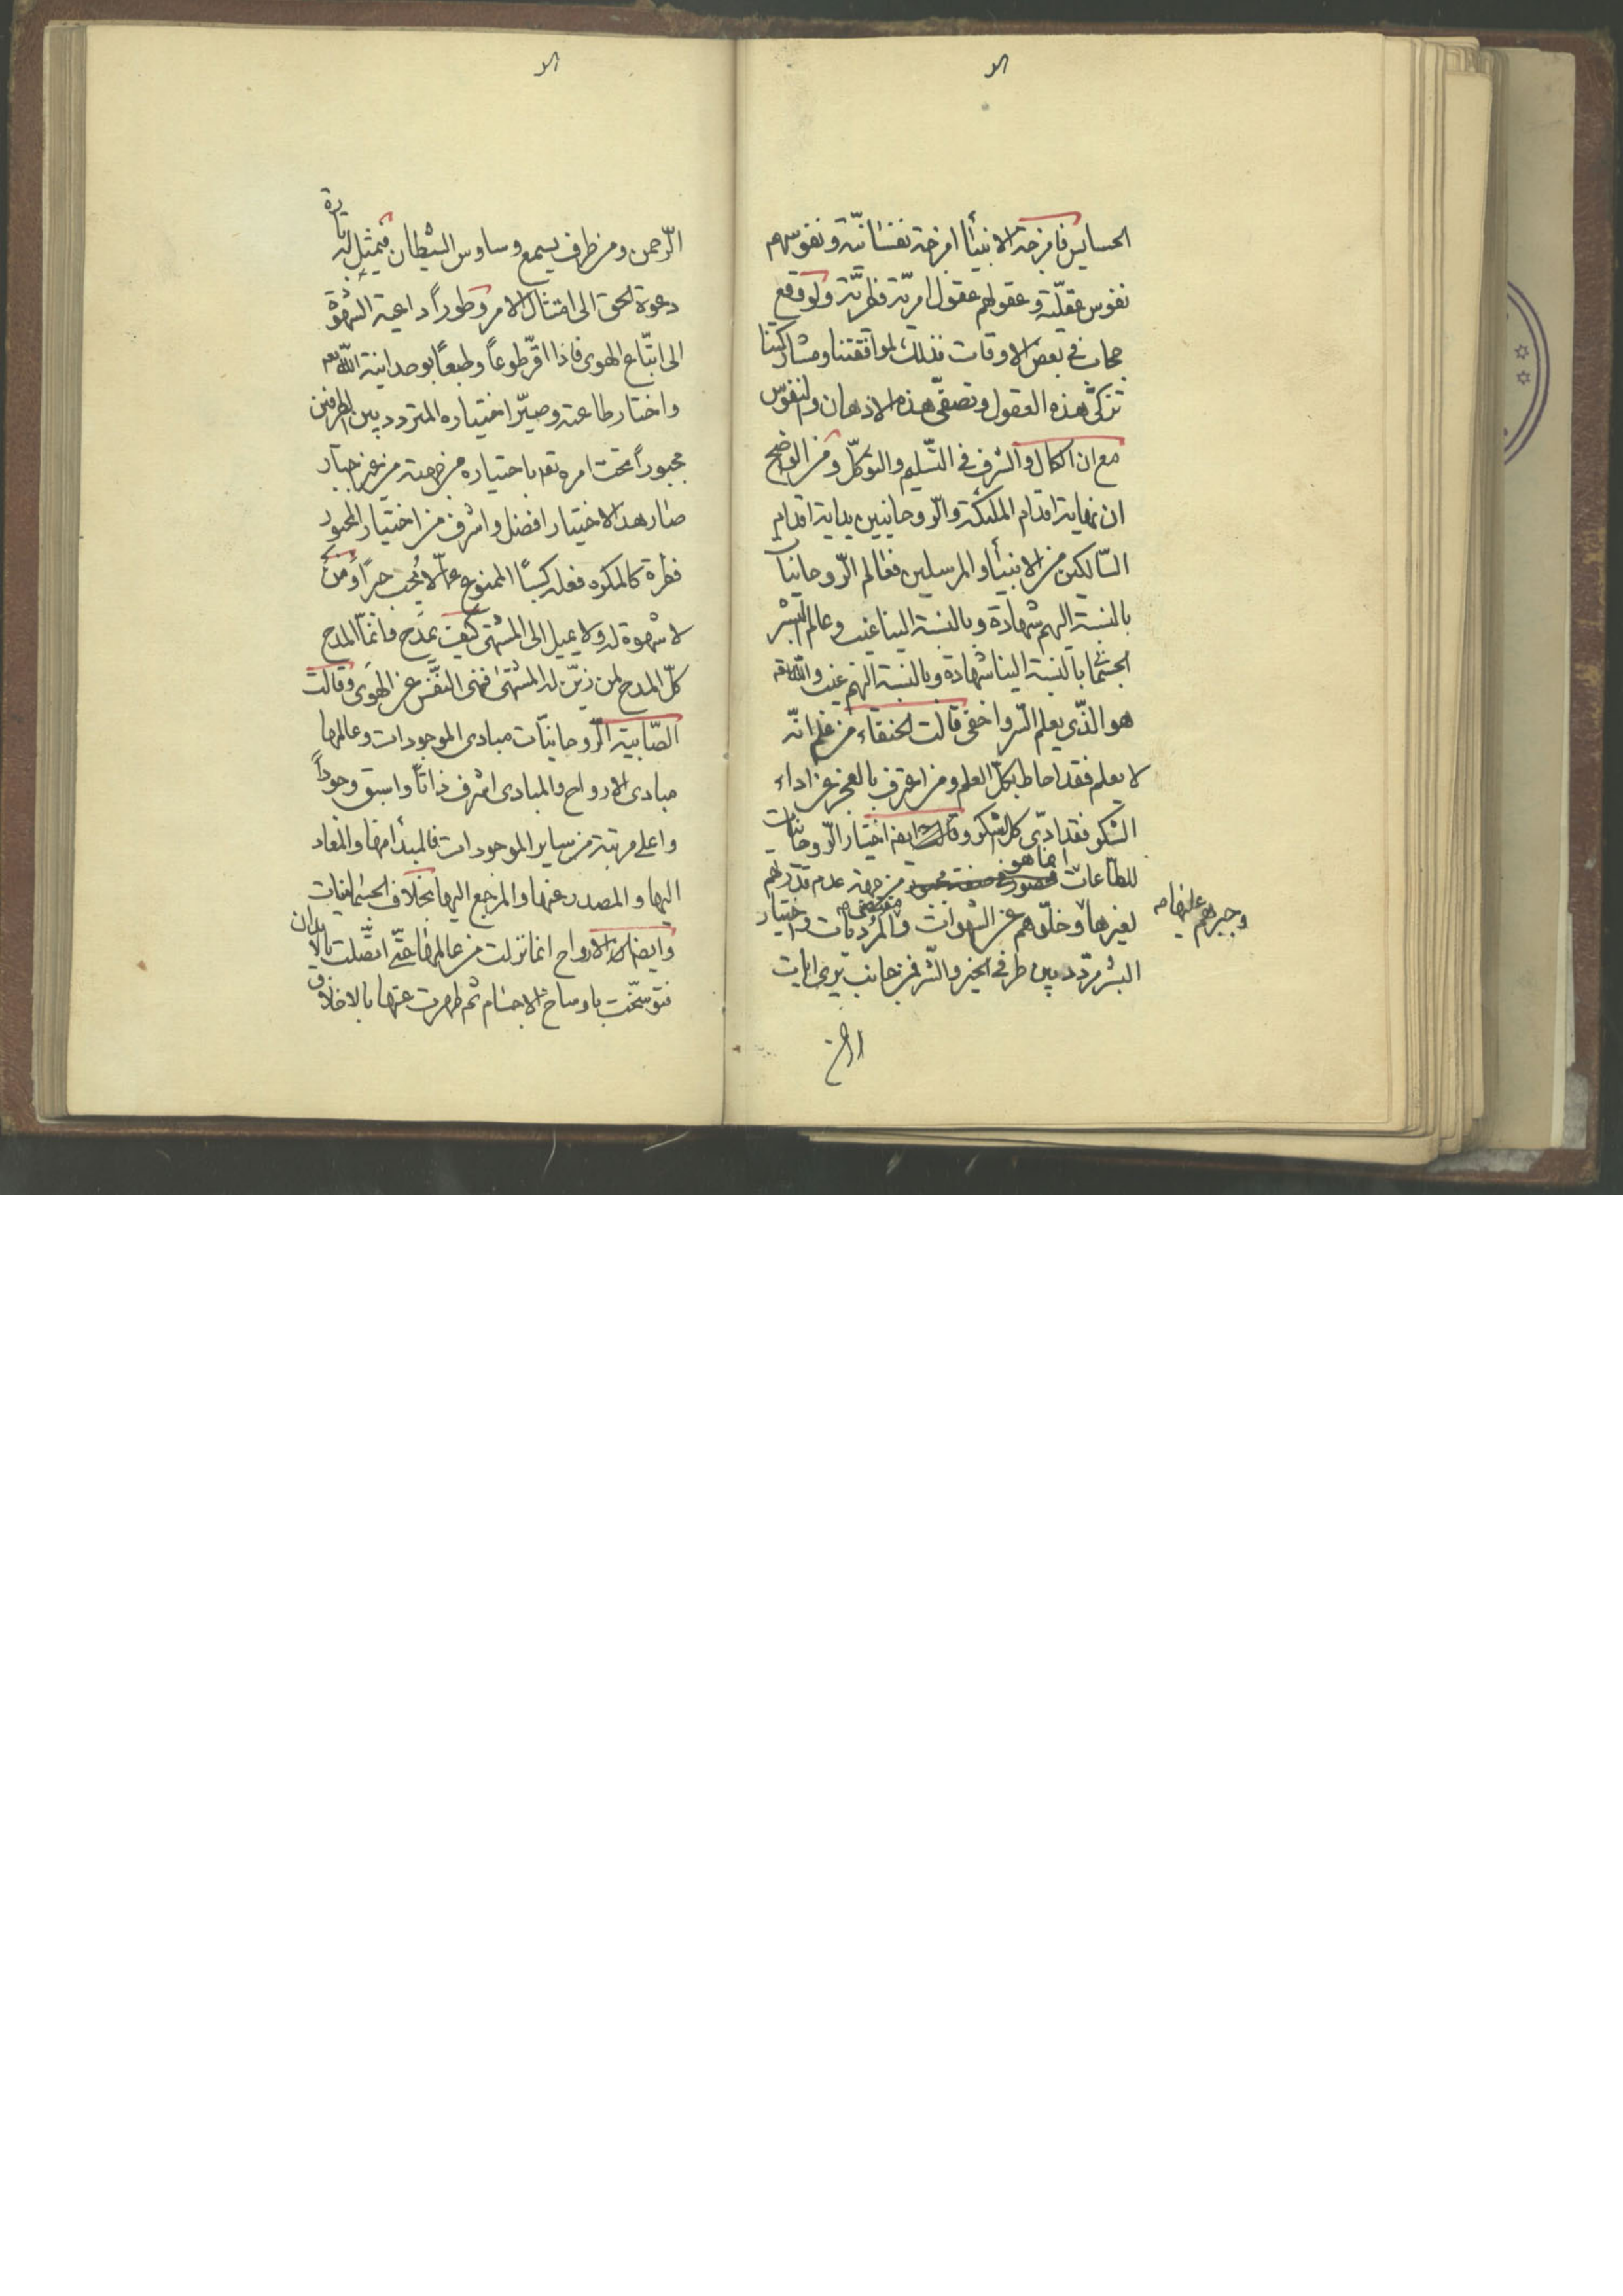 الحسايس فامزجة الانبيا امزجة نفسانيّة ونفوسهم
نفوس عقليّة وعقولهم عقول امريّة فطريّة ولو وقع
حجاب فى بعض الاوقات فذلك لموافقتنا ومشاركتنا
تزكى هذه العقول وتصفى هذه الاذهان والنفوس
مع ان الكمال والشرف فى التسليم والتوكّل ومن الواضح
ان نهاية اقدام الملئكة والرّوحانيين بداية اقدام
السّالكين من الانبيأ والمرسلين فعالم الرّوحانيات
بالنسبة اليهم شهادة وبالنسبة الينا غيب وعالم البشر
الجسمانى بالنسبة الينا شهادة وبالنسبة اليهم غيب والله تعه
هو الذّى يعلم السّر واخفى قالت الحنفاء من علم انّه
لا يعلم فقد احاط بكلّ العلم ومن اعترف بالعجز عن اداء
الشكر فقد ادّى كل الشكر وقالت ايضا اختيار الرّوحانيات
للطاعات انما هو من جهة عدم قدرتهم
لغيرها وخلّوهم عن الشهوات والمرديات واختيار
وجبرهم عليها صه
البشر متردد بين طرفى الخير والشر فمن جانب يرى ايات
الرحمن
الرّحمن ومن طرف يسمع وساوس الشيطان فيمثل له تارة
دعوة الحق الى امتثال الامر وطوراً داعية الشهوة
الى اتّباع الهوى فاذا اقرّ طوعاً وطبعاً بوحدانية الله تعه
واختار طاعته وصيّر اختياره المتردد بين الطرفين
مجبوراً تحت امره تعه باختياره من جهته من غير اجبار
صار هذا الاختيار افضل واشرف من اختيار المجبور
فطرة كالمكره فعله كسباً الممنوع عمّا لا يحب جبراً ومن
لا شهوة له ولا يميل الى المشتهى كيف يمدح وانمّا المدح
كلّ المدح لمن زيّن له المشتهى فنهى النفس عن الهوى وقالت
الصّابية الرّوحانيّات مبادى الموجودات وعالمها
مبادى الارواح والمبادى اشرف ذاتاً واسبق وجوداً
واعلى مرتبة من ساير الموجودات فالمبدأ منها والمعاد
اليها والمصدر عنها والمرجع اليها بخلاف الجسمانيات
وايضا الارواح انما نزلت من عالمها حتّى اتصّلت بالابدان
فتوسّخت باوساخ الاجسام ثم طهرت عنها بالاخلاق